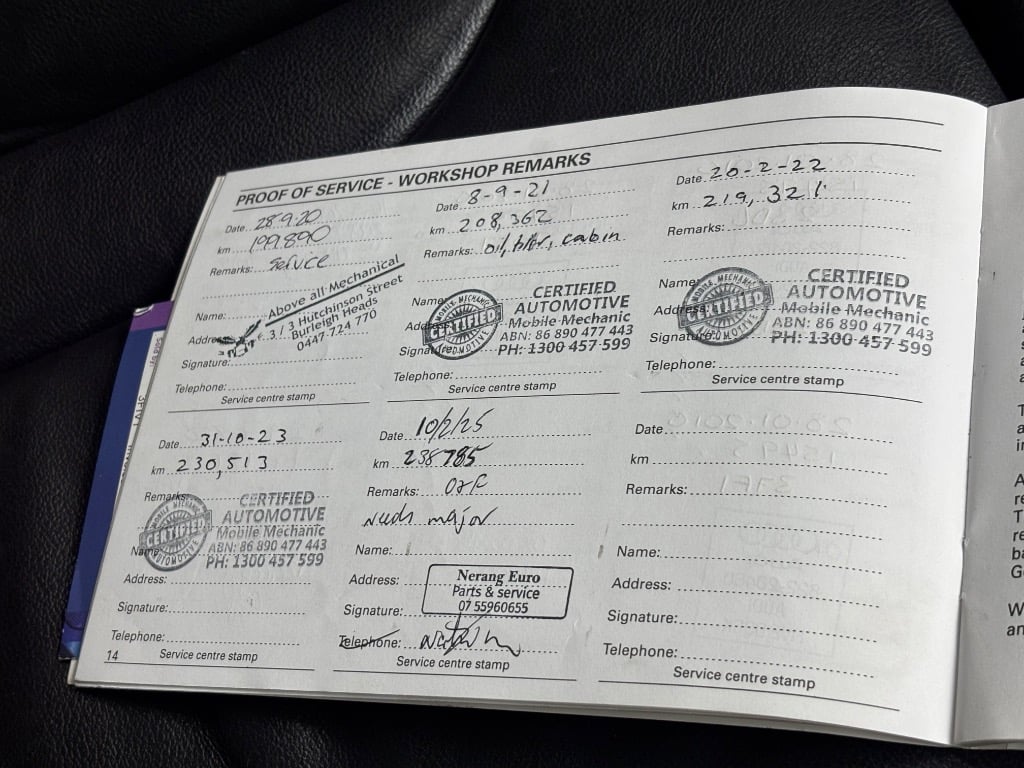 PROOF OF SERVICE - WORKSHOP REMARKS
Date 28.9.20
km 199.890
Remarks: Service
Name:
Above all Mechanical
Address: 3 / 3 Hutchinson Street
Burleigh Heads
0447 724 770
Signature:
Telephone:
Service centre stamp
Date 8-9-21
km 208,362
Remarks: oil, filter, cabin
Name:
Address:
Signature:
MOBILE MECHANIC
CERTIFIED
AUTOMOTIVE
CERTIFIED
AUTOMOTIVE
Mobile Mechanic
ABN: 86 890 477 443
PH: 1300 457 599
Telephone:
Service centre stamp
Date 20-2-22
km 219,321
Remarks:
Name:
Address:
Signature:
MOBILE MECHANIC
CERTIFIED
AUTOMOTIVE
CERTIFIED
AUTOMOTIVE
Mobile Mechanic
ABN: 86 890 477 443
PH: 1300 457 599
Telephone:
Service centre stamp
Date 31-10-23
km 230,513
Remarks:
MOBILE MECHANIC
CERTIFIED
AUTOMOTIVE
CERTIFIED
AUTOMOTIVE
Mobile Mechanic
ABN: 86 890 477 443
PH: 1300 457 599
Name:
Address:
Signature:
Telephone:
14
Service centre stamp
Date 10/2/25
km 238785
Remarks: O+F
Needs major
Name:
Address:
Nerang Euro
Parts & service
07 55960655
Signature:
Telephone:
Service centre stamp
Date
km
Remarks:
Name:
Address:
Signature:
Telephone:
Service centre stamp